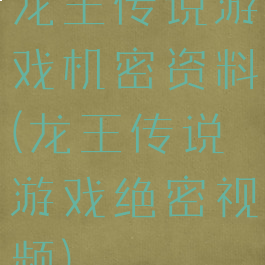 龙王传说游
戏机密资料
(龙王传说
游戏绝密视
频)